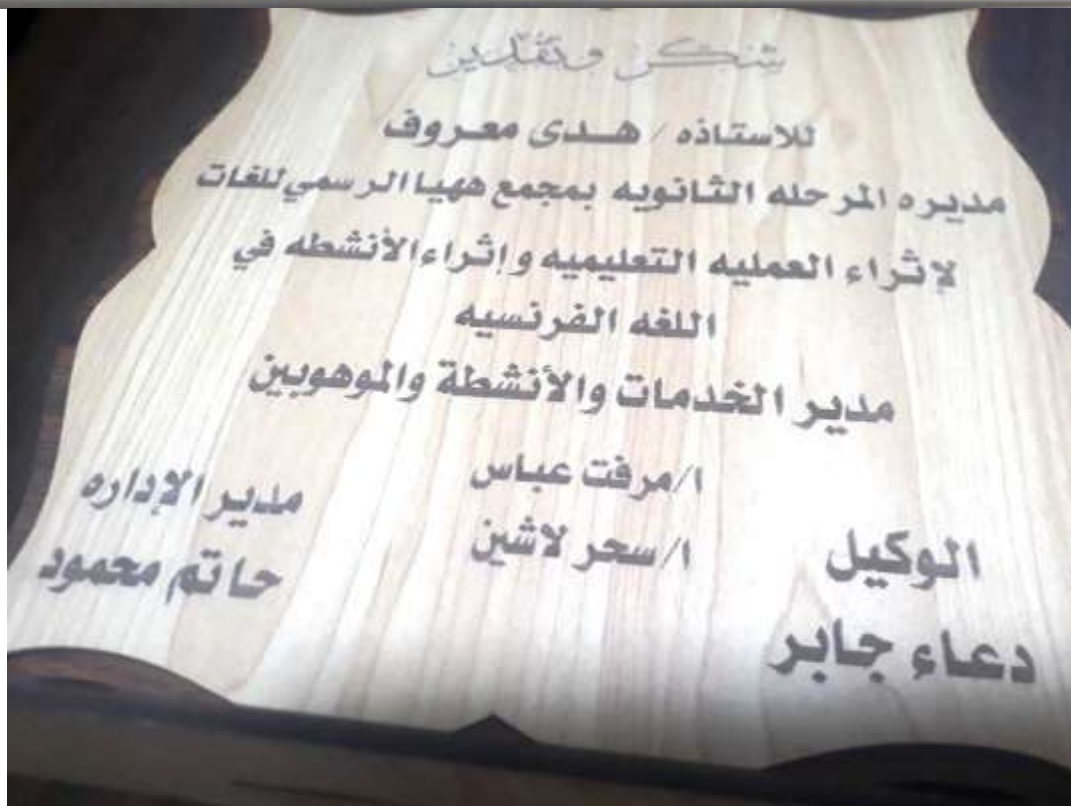 شكر وتقدير
للاستاذه / هدى معروف
مديره المرحله الثانويه بمجمع ههيا الرسمي للغات
لإثراء العمليه التعليميه وإثراء الأنشطه في
اللغه الفرنسيه
مدير الخدمات والأنشطة والموهوبين
الوكيل
دعاء جابر
ا/مرفت عباس
ا/سحر لاشين
مدير الإداره
حاتم محمود